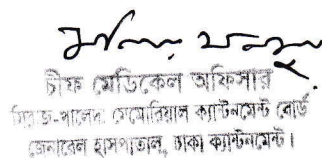 চীফ মেডিকেল অফিসার
মেমোরিয়াল ক্যান্টনমেন্ট বোর্ড
জেনারেল হাসপাতাল, ঢাকা ক্যান্টনমেন্ট।